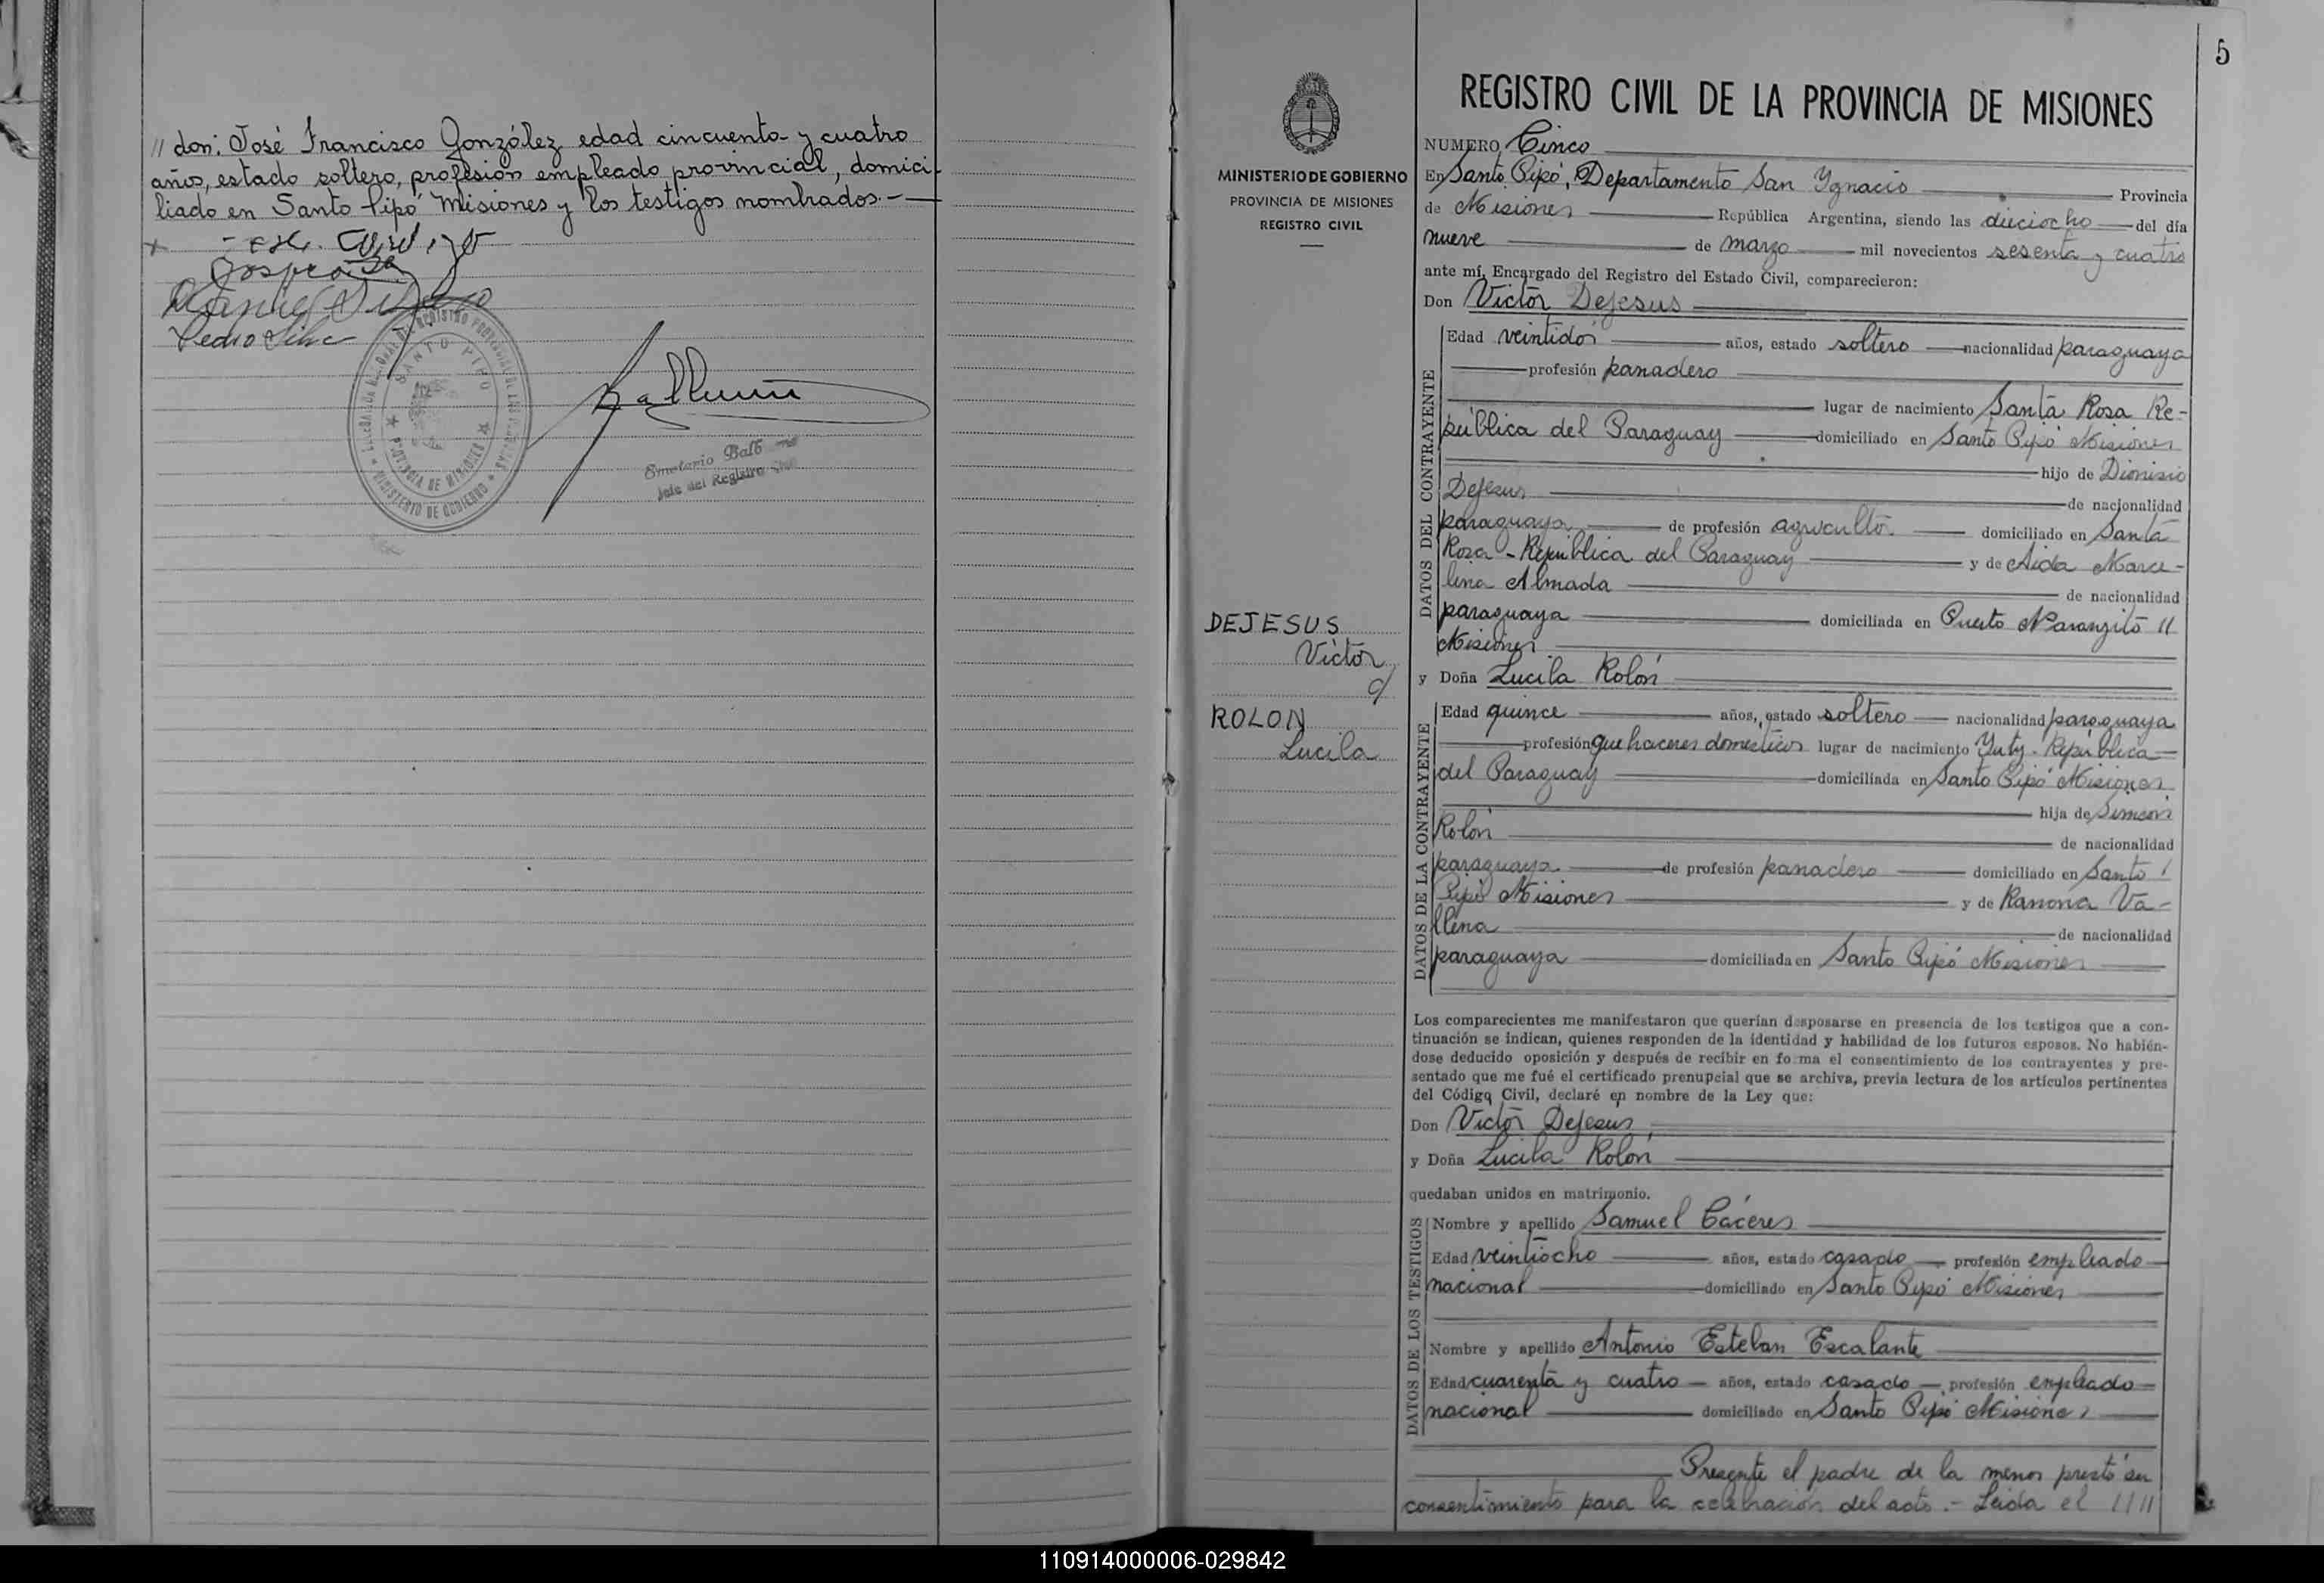 // don: José Francisco González, edad cincuenta y cuatro
años, estado soltero, profesión empleado provincial, domici-
liado en Santo Pipó Misiones y los testigos nombrados.-
Pedro Silva
REGISTRO PROVINCIAL DE LAS PERSONAS
SANTO PIPO
PROVINCIA DE MISIONES
MINISTERIO DE GOBIERNO
Jefe del Registro Civil
5
REGISTRO CIVIL DE LA PROVINCIA DE MISIONES
MINISTERIO DE GOBIERNO
PROVINCIA DE MISIONES
REGISTRO CIVIL
NUMERO Cinco
En Santo Pipó, Departamento San Ygnacio Provincia
de Misiones República Argentina, siendo las dieciocho del día
nueve de marzo mil novecientos sesenta y cuatro
ante mí, Encargado del Registro del Estado Civil, comparecieron:
Don Victor Dejesus
DATOS DEL CONTRAYENTE
Edad veintidos años, estado soltero nacionalidad paraguaya
profesión panadero
lugar de nacimiento Santa Rosa Re-
pública del Paraguay domiciliado en Santo Pipó Misiones
hijo de Dionisio
Dejesus de nacionalidad
paraguaya de profesión agricultor domiciliado en Santa
Rosa - República del Paraguay y de Aida Marce-
lina Almada de nacionalidad
paraguaya domiciliada en Puerto Naranjito //
Misiones
DEJESUS
Victor
c/
ROLON
Lucila
y Doña Lucila Rolón
DATOS DE LA CONTRAYENTE
Edad quince años, estado soltero nacionalidad paraguaya
profesión quehaceres domesticos lugar de nacimiento Yuty - República
del Paraguay domiciliada en Santo Pipó Misiones
hija de Simeon
Rolón de nacionalidad
paraguaya de profesión panadero domiciliado en Santo /
Pipó Misiones y de Ramona Va-
llena de nacionalidad
paraguaya domiciliada en Santo Pipó Misiones
Los comparecientes me manifestaron que querían desposarse en presencia de los testigos que a con-
tinuación se indican, quienes responden de la identidad y habilidad de los futuros esposos. No habién-
dose deducido oposición y después de recibir en forma el consentimiento de los contrayentes y pre-
sentado que me fué el certificado prenupcial que se archiva, previa lectura de los artículos pertinentes
del Código Civil, declaré en nombre de la Ley que:
Don Victor Dejesus
y Doña Lucila Rolón
quedaban unidos en matrimonio.
DATOS DE LOS TESTIGOS
Nombre y apellido Samuel Cáceres
Edad veintiocho años, estado casado profesión empleado
nacional domiciliado en Santo Pipó Misiones
Nombre y apellido Antonio Esteban Escalante
Edad cuarenta y cuatro años, estado casado profesión empleado
nacional domiciliado en Santo Pipó Misiones
Presente el padre de la menor prestó su
consentimiento para la celebración del acto.- Leida el ////
110914000006-029842